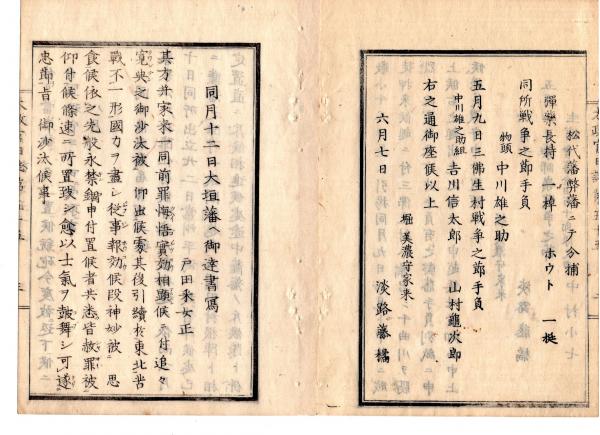 松代藩弊藩ニテ分捕
彈藥長持　一棹　ホウト　一挺
同所戰争之節手負
物頭　中川雄之助
五月九日三佛生村戰争之節手負
中川雄之助組　吉川信太郎　山村龜次郎
右之通御座候以上
堀美濃守家来
六月七日　淡路藤橘
同月十二日大垣藩ヘ御達書寫
戸田釆女正
其方并家来一同前罪悔悟實効相顯候ニ付追々
寛典之御沙汰被　仰出候處其後引續於東北苦
戰不一形國力ヲ盡シ從事報効候段神妙被　思
食候依之先般永禁錮申付置候者共悉皆赦罪被
仰付候條速ニ所置致シ愈以士氣ヲ鼓舞シ可遂
忠節旨　御沙汰候事